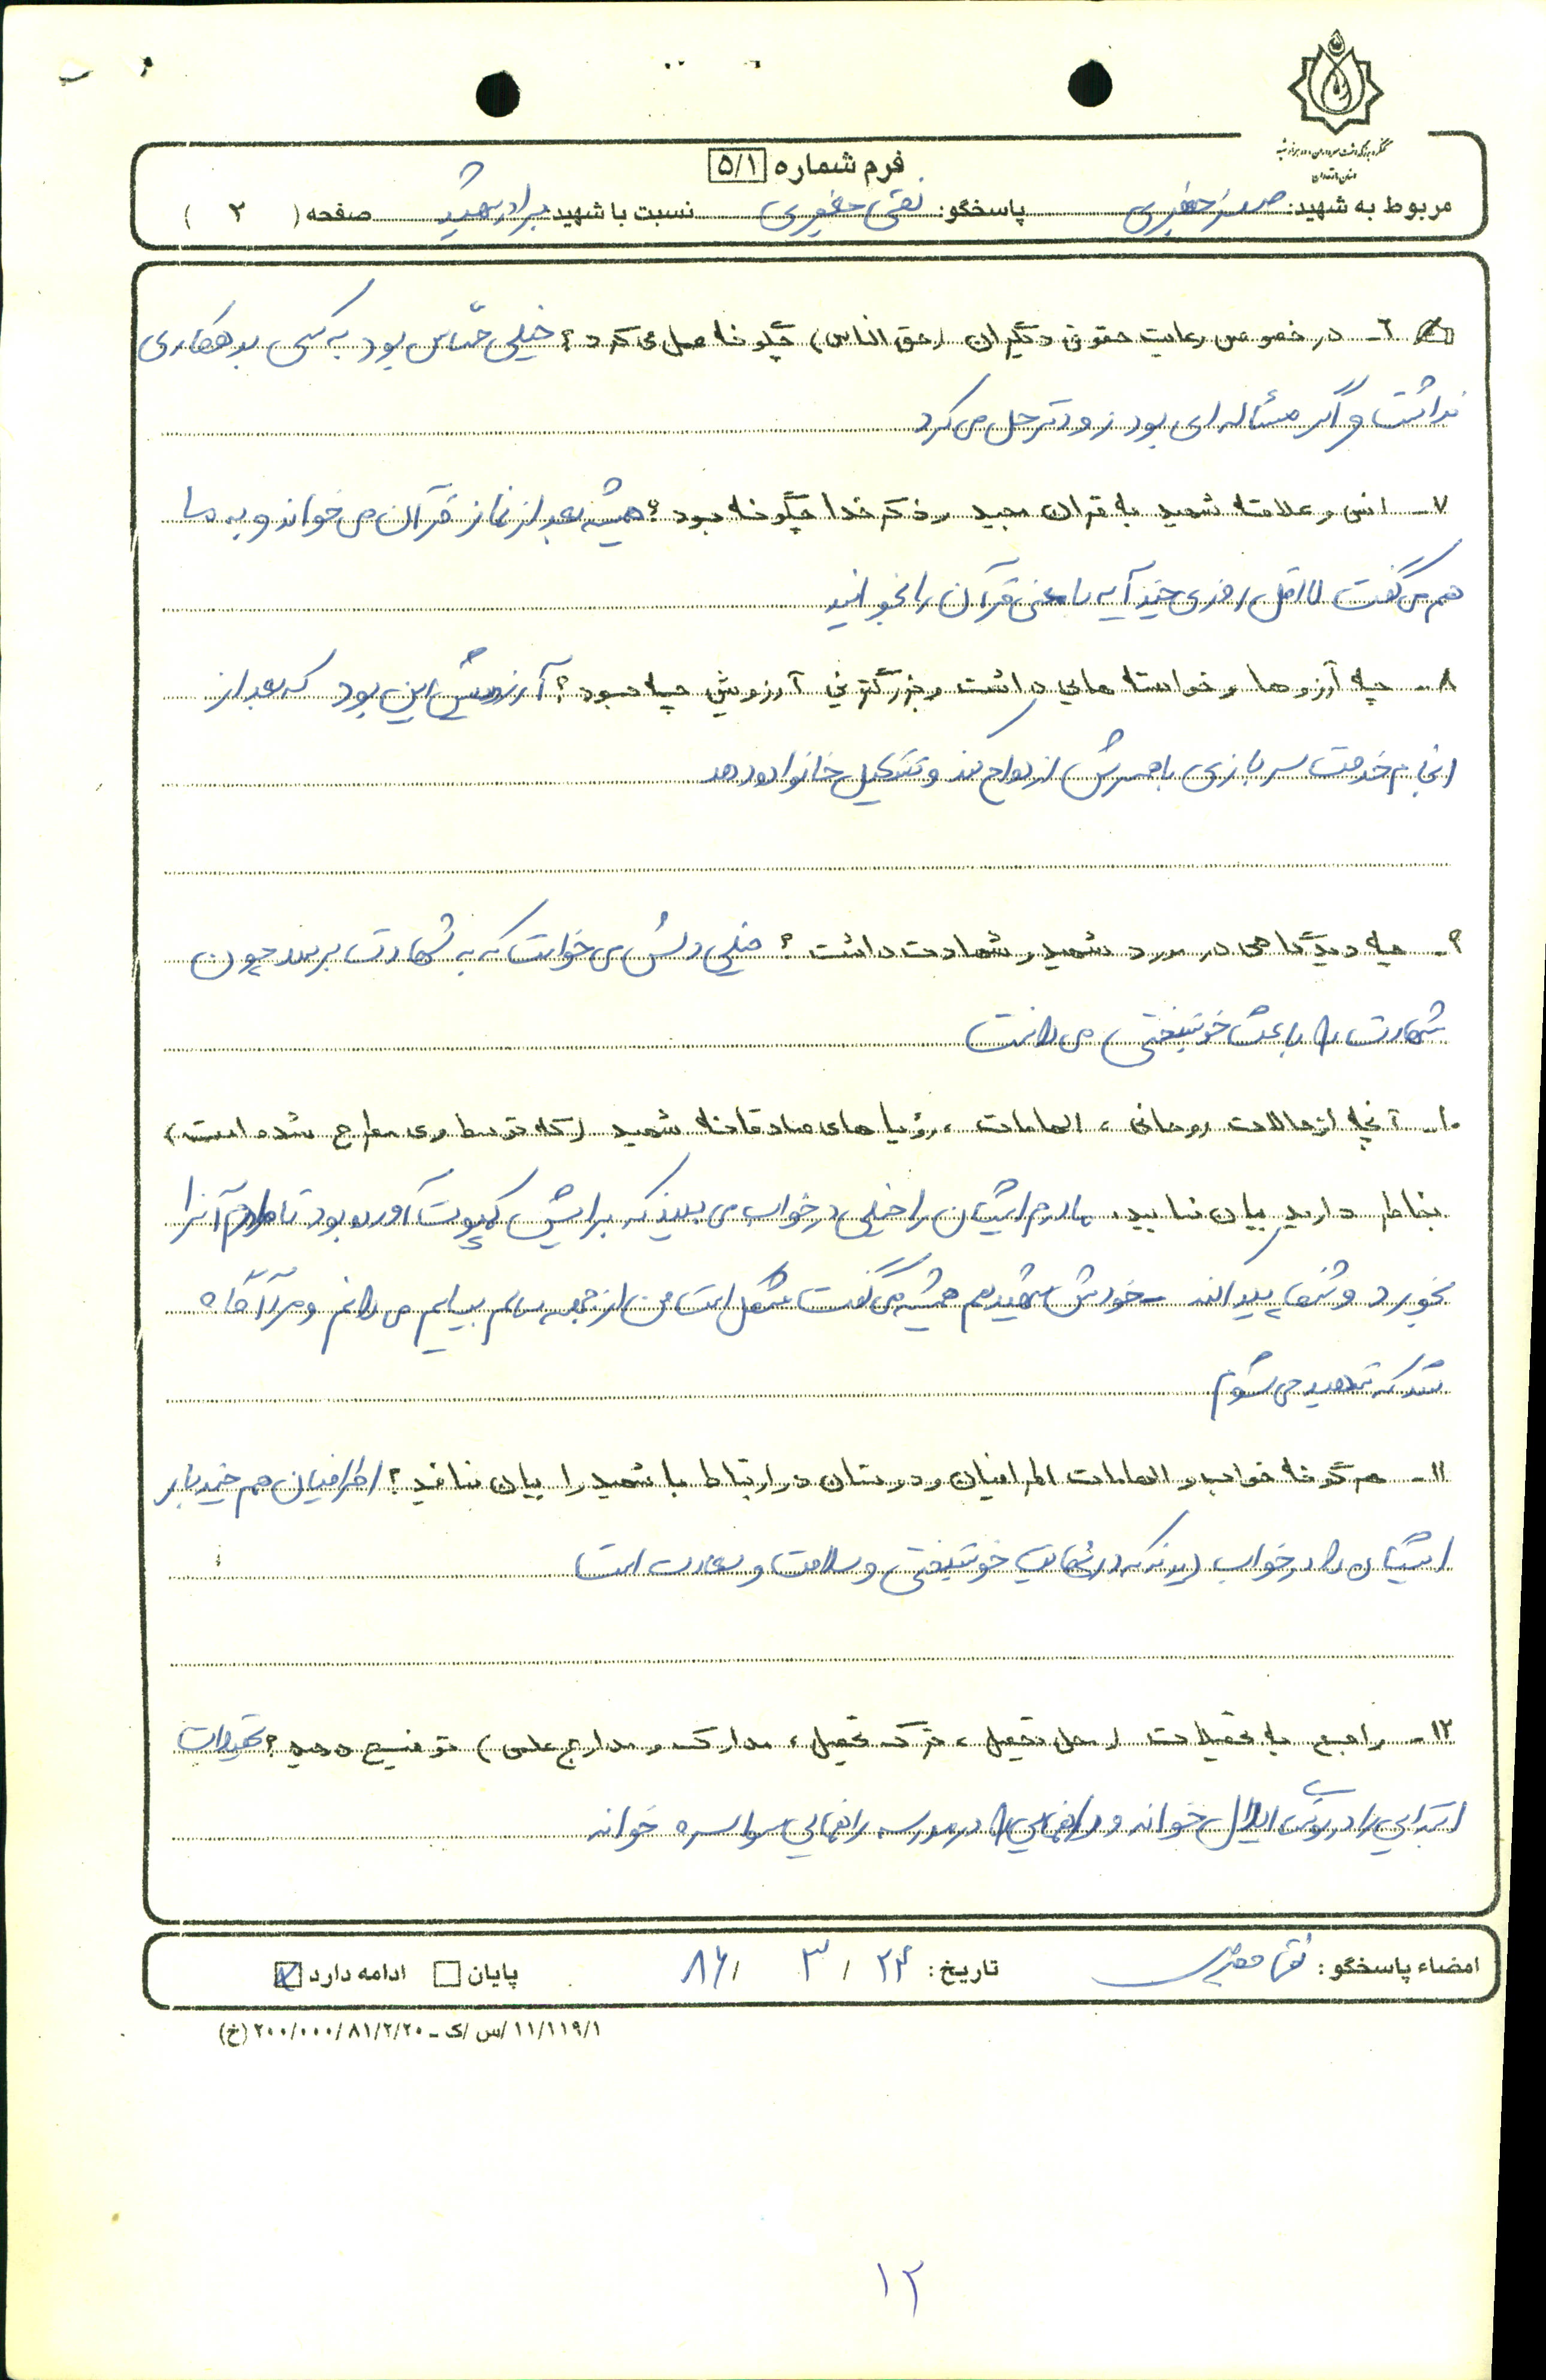 فرم شماره ۵/۱
مربوط به شهید: صفدر جعفری پاسخگو: نقی جعفری نسبت با شهید برادر شهید صفحه ( ۲ )
۶- در خصوص رعایت حقوق دیگران (حق الناس) چگونه عمل می کرد؟ خیلی حساس بود به کسی بدهکاری
نداشت و اگر مسئاله ای بود زودتر حل می کرد
۷- انس و علاقه شهید به قرآن مجید و ذکر خدا چگونه بود؟ همیشه بعد از نماز قرآن می خواند و به ما
هم می گفت لااقل روزی چند آیه با معنی قرآن را بخوانید
۸- چه آرزوها و خواسته هایی داشت و بزرگترین آرزویش چه بود؟ آرزویش این بود که بعد از
انجام خدمت سربازی با همسرش ازدواج کند و تشکیل خانواده دهد
۹- چه دیدگاهی در مورد شهید و شهادت داشت؟ خیلی دلش می خواست که به شهادت برسد چون
شهادت را باعث خوشبختی می دانست
۱۰- آنچه از حالات روحانی، الهامات، رؤیاهای صادقانه شهید (که توسط وی مطرح شده است)
بخاطر دارید بیان نمایید. مادرم ایشان را خیلی در خواب می بیند که برایش کمپوت آورده بود تا مادرم آنرا
بخورد و شفا پیدا کند - خودش شهید هم همیشه می گفت مشکل است من از جبهه سالم بیایم می دانم و مرا آگاه
شد که شهید می شوم
۱۱- هرگونه خواب و الهامات اطرافیان و دوستان در ارتباط با شهید را بیان نمائید؟ اطرافیان هم چند بار
ایشان را در خواب دیدند که در نهایت خوشبختی و سلامت و سعادت است
۱۲- راجع به تحصیلات (محل تحصیل، ترک تحصیل، مدارک و مدارج علمی) توضیح دهید؟ تحصیلات
ابتدایی را در روستای خوانده و راهنمایی را در مدرسه راهنمایی خوانده
امضاء پاسخگو: نقی جعفری تاریخ: ۲۴ / ۳ / ۸۶ پایان ادامه دارد
۱۱/۱۱۹/۱/س/ک-۲۰۰/۰۰۰/۸۱/۲/۲۰ (خ)
۱۲